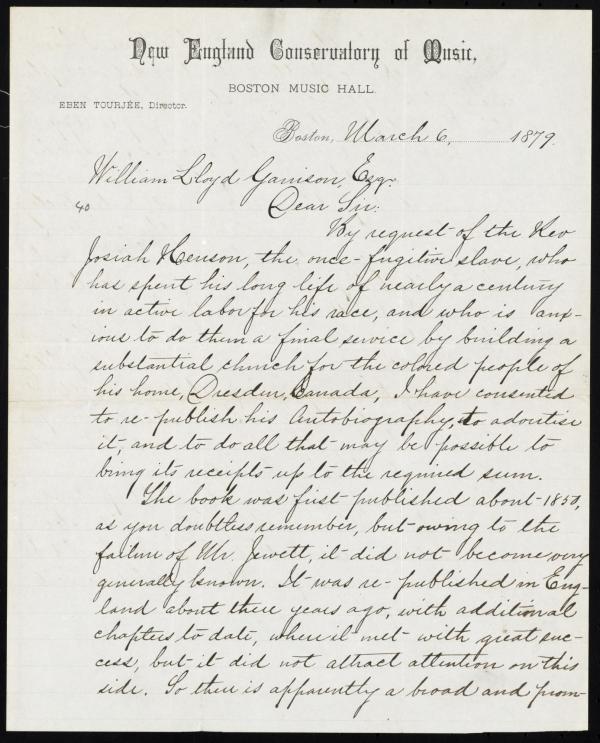 New England Conservatory of Music,
BOSTON MUSIC HALL.
EBEN TOURJÉE, Director.
Boston, March 6, 1879.
William Lloyd Garrison, Esq.
40
Dear Sir:
By request of the Rev
Josiah Henson, the once-fugitive slave, who
has spent his long life of nearly a century
in active labor for his race, and who is anx-
ious to do them a final service by building a
substantial church for the colored people of
his home, Dresden, Canada, I have consented
to re-publish his Autobiography, to advertise
it, and to do all that may be possible to
bring its receipts up to the required sum.
The book was first published about 1850,
as you doubtless remember, but owing to the
failure of Mr. Jewett, it did not become very
generally known. It was re-published in Eng-
land about three years ago, with additional
chapters to date, where it met with great suc-
cess, but it did not attract attention on this
side. So there is apparently a broad and prom-